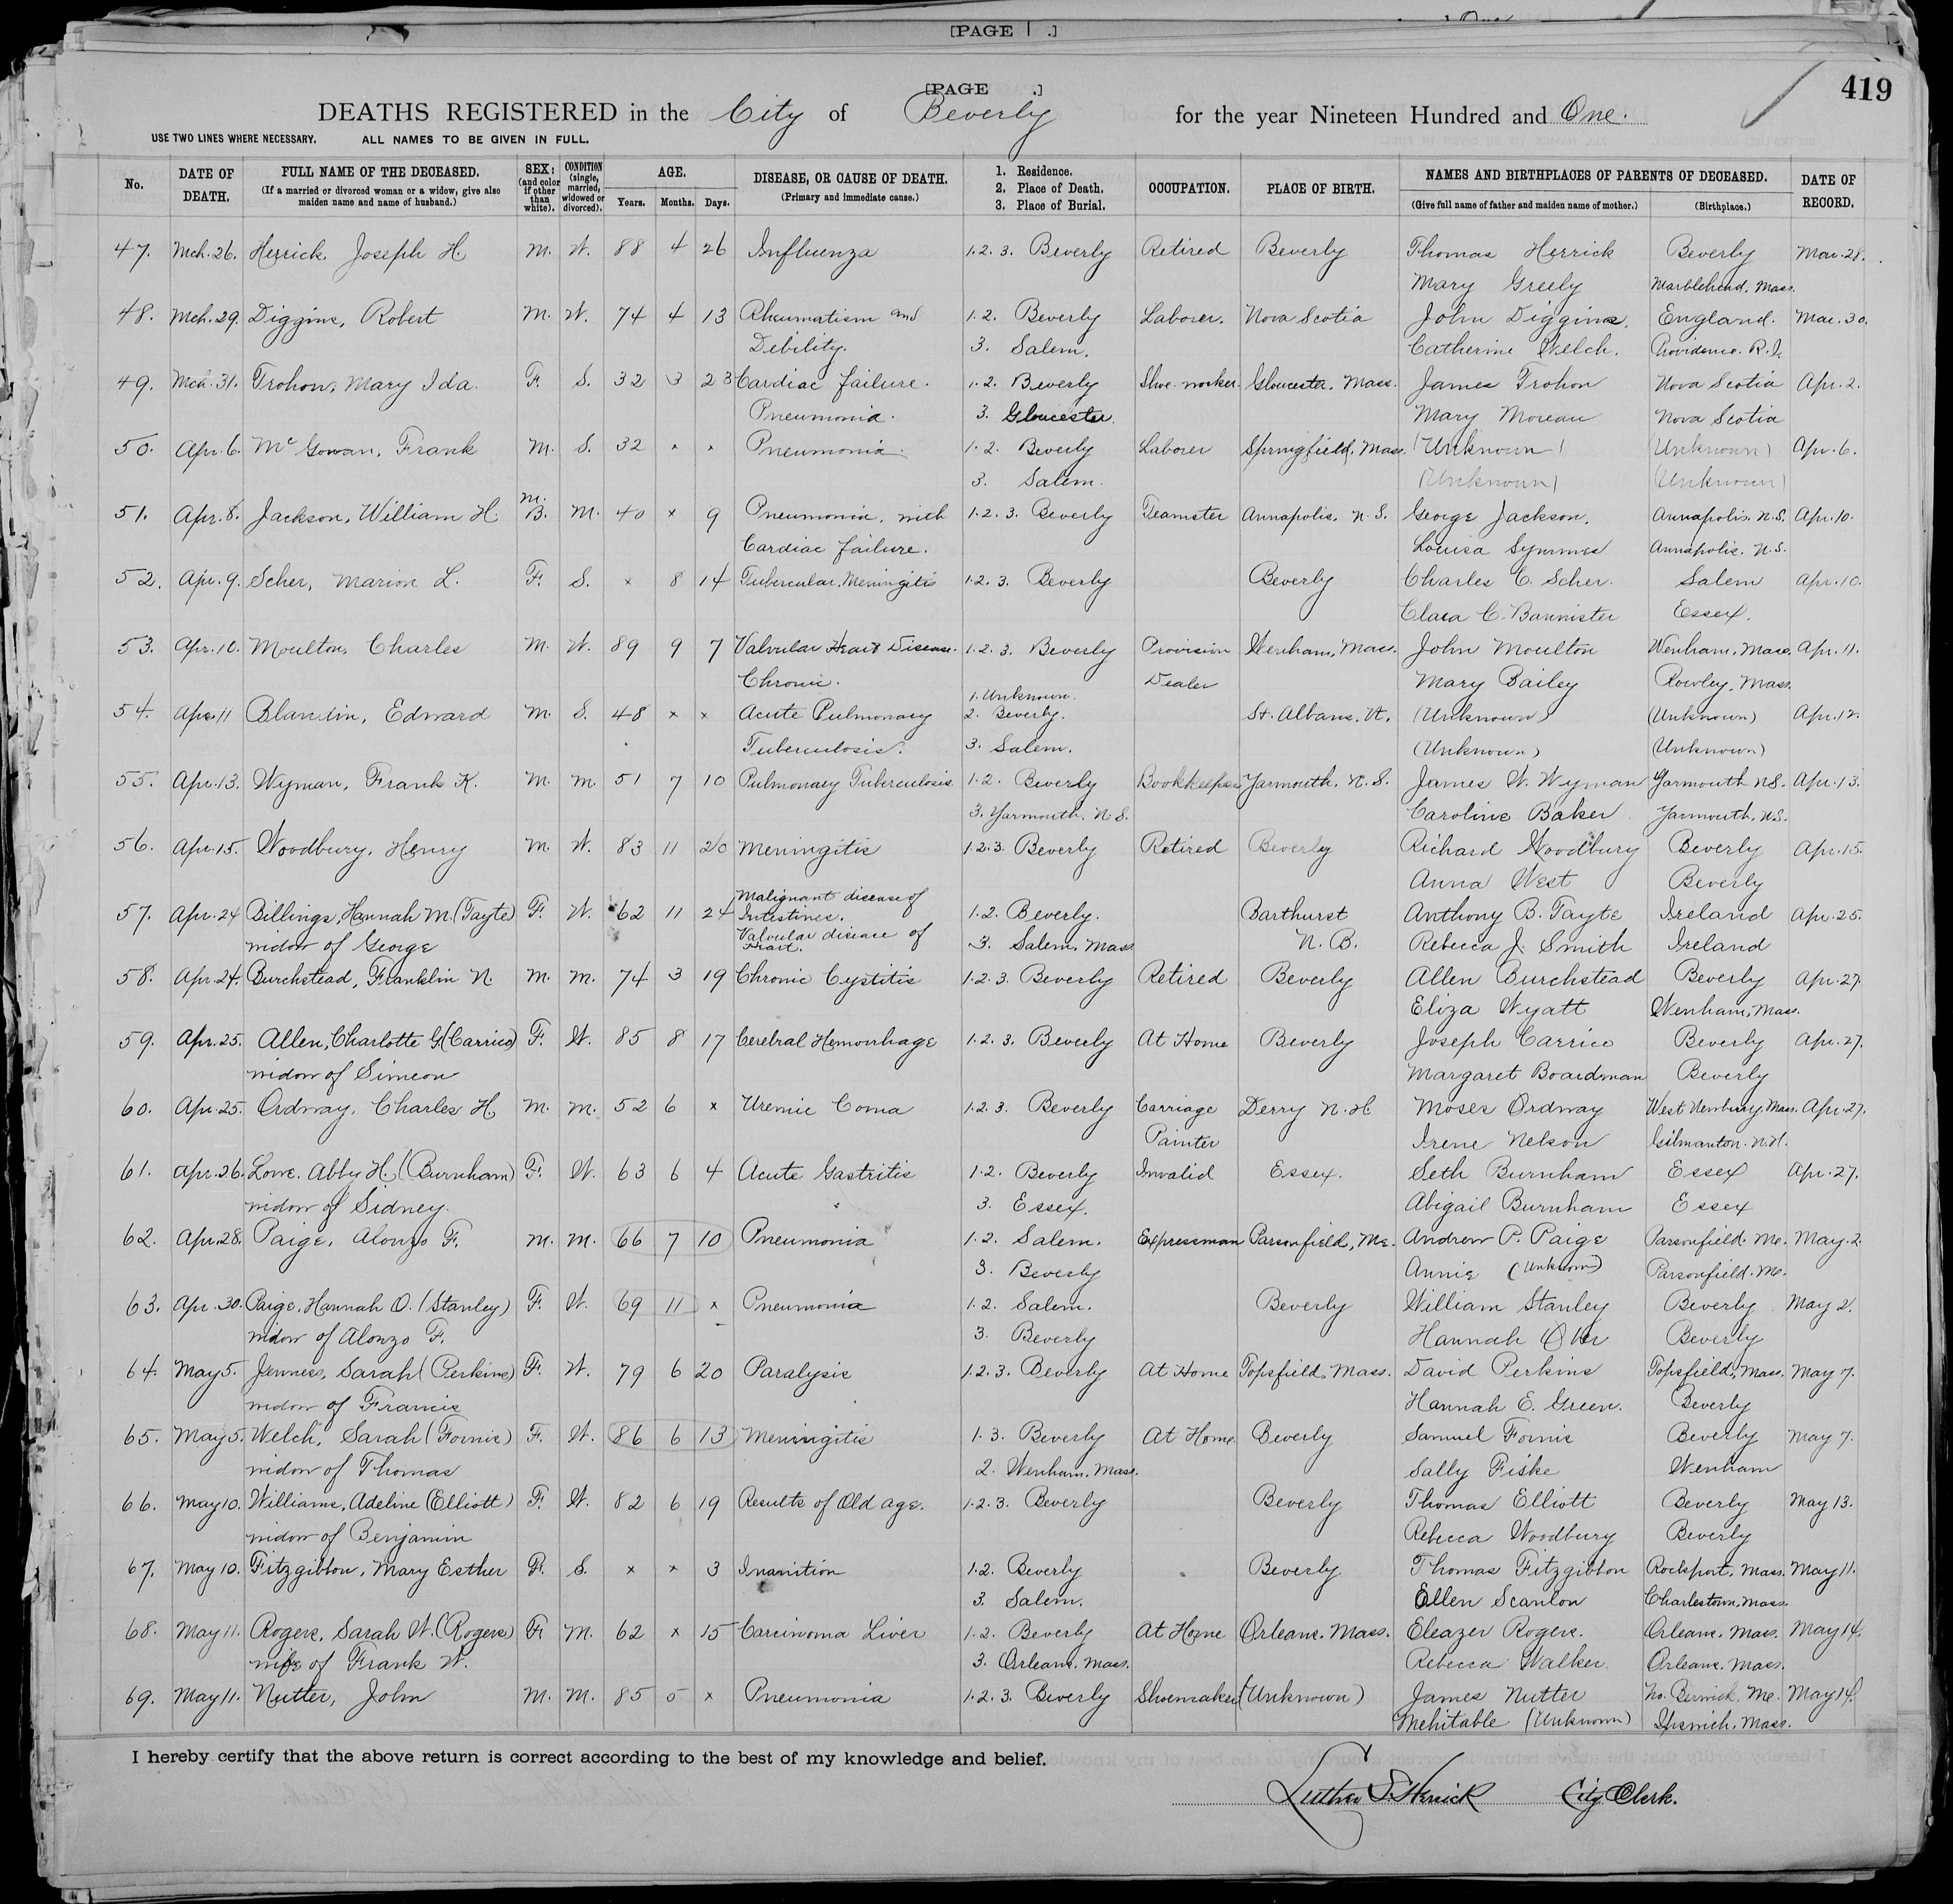 [PAGE 1 .]
419
[PAGE .]
DEATHS REGISTERED in the City of Beverly for the year Nineteen Hundred and One.
USE TWO LINES WHERE NECESSARY. ALL NAMES TO BE GIVEN IN FULL.
No. DATE OF DEATH. FULL NAME OF THE DECEASED. (If a married or divorced woman or a widow, give also maiden name and name of husband.) SEX: (and color if other than white). CONDITION (single, married, widowed or divorced). AGE. Years. Months. Days. DISEASE, OR CAUSE OF DEATH. (Primary and immediate cause.) 1. Residence. 2. Place of Death. 3. Place of Burial. OCCUPATION. PLACE OF BIRTH. NAMES AND BIRTHPLACES OF PARENTS OF DECEASED. (Give full name of father and maiden name of mother.) (Birthplace.) DATE OF RECORD.
47. Mch. 26. Herrick, Joseph H. M. W. 88 4 26 Influenza 1. 2. 3. Beverly Retired Beverly Thomas Herrick Beverly Mar. 28.
Mary Greely Marblehead, Mass.
48. Mch. 29. Diggins, Robert M. W. 74 4 13 Rheumatism and 1. 2. Beverly Laborer. Nova Scotia John Diggins. England. Mar. 30.
Debility. 3. Salem. Catherine Welch. Providence. R.I.
49. Mch. 31. Trohon, Mary Ida. F. S. 32 3 23 Cardiac failure. 1. 2. Beverly Shoe worker. Gloucester, Mass. James Trohon Nova Scotia Apr. 2.
Pneumonia. 3. Gloucester. Mary Moreau Nova Scotia
50. Apr. 6. McGowan, Frank M. S. 32 × × Pneumonia. 1. 2. Beverly Laborer Springfield, Mass. (Unknown) (Unknown) Apr. 6.
3. Salem. (Unknown) (Unknown)
51. Apr. 8. Jackson, William H. M. B. M. 40 × 9 Pneumonia, with 1. 2. 3. Beverly Teamster Annapolis, N.S. George Jackson. Annapolis. N.S. Apr. 10.
Cardiac failure. Louisa Symmes Annapolis. N.S.
52. Apr. 9. Scher, Marion L. F. S. × 8 14 Tubercular Meningitis 1. 2. 3. Beverly Beverly Charles C. Scher. Salem Apr. 10.
Clara C. Bannister Essex.
53. Apr. 10. Moulton, Charles M. W. 89 9 7 Valvular Heart Disease. 1. 2. 3. Beverly Provision Wenham, Mass. John Moulton Wenham, Mass. Apr. 11.
Chronic. Dealer Mary Bailey Rowley, Mass.
54. Apr. 11 Blandin, Edward M. S. 48 × × Acute Pulmonary 1. Unknown. 2. Beverly. St. Albans. Vt. (Unknown) (Unknown) Apr. 12.
Tuberculosis. 3. Salem. (Unknown) (Unknown)
55. Apr. 13. Wyman, Frank K. M. M. 51 7 10 Pulmonary Tuberculosis 1. 2. Beverly Bookkeeper Yarmouth. N.S. James W. Wyman Yarmouth N.S. Apr. 13.
3. Yarmouth. N.S. Caroline Baker Yarmouth, N.S.
56. Apr. 15. Woodbury, Henry M. W. 83 11 20 Meningitis 1. 2. 3. Beverly Retired Beverly Richard Woodbury Beverly Apr. 15.
Anna West Beverly
57. Apr. 24 Billings, Hannah M. (Tayte) F. W. 62 11 24 Malignant disease of Intestines. 1. 2. Beverly. Barthurst Anthony B. Tayte Ireland Apr. 25.
widow of George Valvular disease of Heart. 3. Salem, Mass N.B. Rebecca J. Smith Ireland
58. Apr. 24. Burchstead, Franklin N. M. M. 74 3 19 Chronic Cystitis 1. 2. 3. Beverly Retired Beverly Allen Burchstead Beverly Apr. 27.
Eliza Wyatt Wenham, Mass.
59. Apr. 25. Allen, Charlotte G (Carrico) F. W. 85 8 17 Cerebral Hemorrhage 1. 2. 3. Beverly At Home Beverly Joseph Carrico Beverly Apr. 27.
widow of Simeon Margaret Boardman Beverly
60. Apr. 25. Ordway, Charles H. M. M. 52 6 × Uremic Coma 1. 2. 3. Beverly Carriage Derry N.H. Moses Ordway West Newbury, Mass. Apr. 27.
Painter Irene Nelson Gilmanton. N.H.
61. Apr. 26. Lowe. Abby H. (Burnham) F. W. 63 6 4 Acute Gastritis 1. 2. Beverly Invalid Essex. Seth Burnham Essex Apr. 27.
widow of Sidney. 3. Essex. Abigail Burnham Essex
62. Apr. 28. Paige, Alonzo F. M. M. 66 7 10 Pneumonia 1. 2. Salem. Expressman Parsonfield, Me. Andrew P. Paige Parsonfield. Me. May. 2.
3. Beverly Annie (Unknown) Parsonfield. Me.
63. Apr. 30. Paige, Hannah O. (Stanley) F. W. 69 11 × Pneumonia 1. 2. Salem. Beverly William Stanley Beverly May 2.
widow of Alonzo F. 3. Beverly Hannah Beverly
64. May 5. Jenness, Sarah (Perkins) F. W. 79 6 20 Paralysis 1. 2. 3. Beverly At Home Topsfield, Mass. David Perkins Topsfield, Mass. May 7.
widow of Francis Hannah E. Green. Beverly
65. May 5. Welch, Sarah (Fornis) F. W. 86 6 13 Meningitis 1. 3. Beverly At Home. Beverly Samuel Fornis Beverly May 7.
widow of Thomas 2. Wenham, Mass. Sally Fiske Wenham
66. May 10. Williams, Adeline (Elliott) F. W. 82 6 19 Results of Old age. 1. 2. 3. Beverly Beverly Thomas Elliott Beverly May 13.
widow of Benjamin Rebecca Woodbury Beverly
67. May 10. Fitzgibbon, Mary Esther F. S. × × 3 Inanition 1. 2. Beverly Beverly Thomas Fitzgibbon Rockport, Mass. May 11.
3. Salem. Ellen Scanlon Charlestown, Mass.
68. May 11. Rogers, Sarah W. (Rogers) F. M. 62 × 15 Carcinoma Liver 1. 2. Beverly At Home Orleans. Mass. Eleazer Rogers. Orleans, Mass. May 14.
wife of Frank W. 3. Orleans, Mass. Rebecca Walker. Orleans. Mass.
69. May 11. Nutter, John M. M. 85 5 × Pneumonia 1. 2. 3. Beverly Shoemaker (Unknown) James Nutter No. Berwick, Me. May 14.
Mehitable (Unknown) Ipswich, Mass.
I hereby certify that the above return is correct according to the best of my knowledge and belief.
Luther S. Herrick City Clerk.